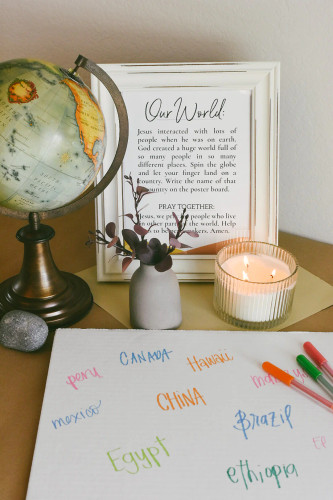 Our World:
Jesus interacted with lots of
people when he was on earth.
God created a huge world full of
so many people in so many
different places. Spin the globe
and let your finger land on a
country. Write the name of that
country on the poster board.
PRAY TOGETHER:
Jesus, we pray for people who live
in other parts of the world. Help
us to be Amen.
peru
CANADA
Hawaii
mexico
CHINA
Brazil
Egypt
ethiopia